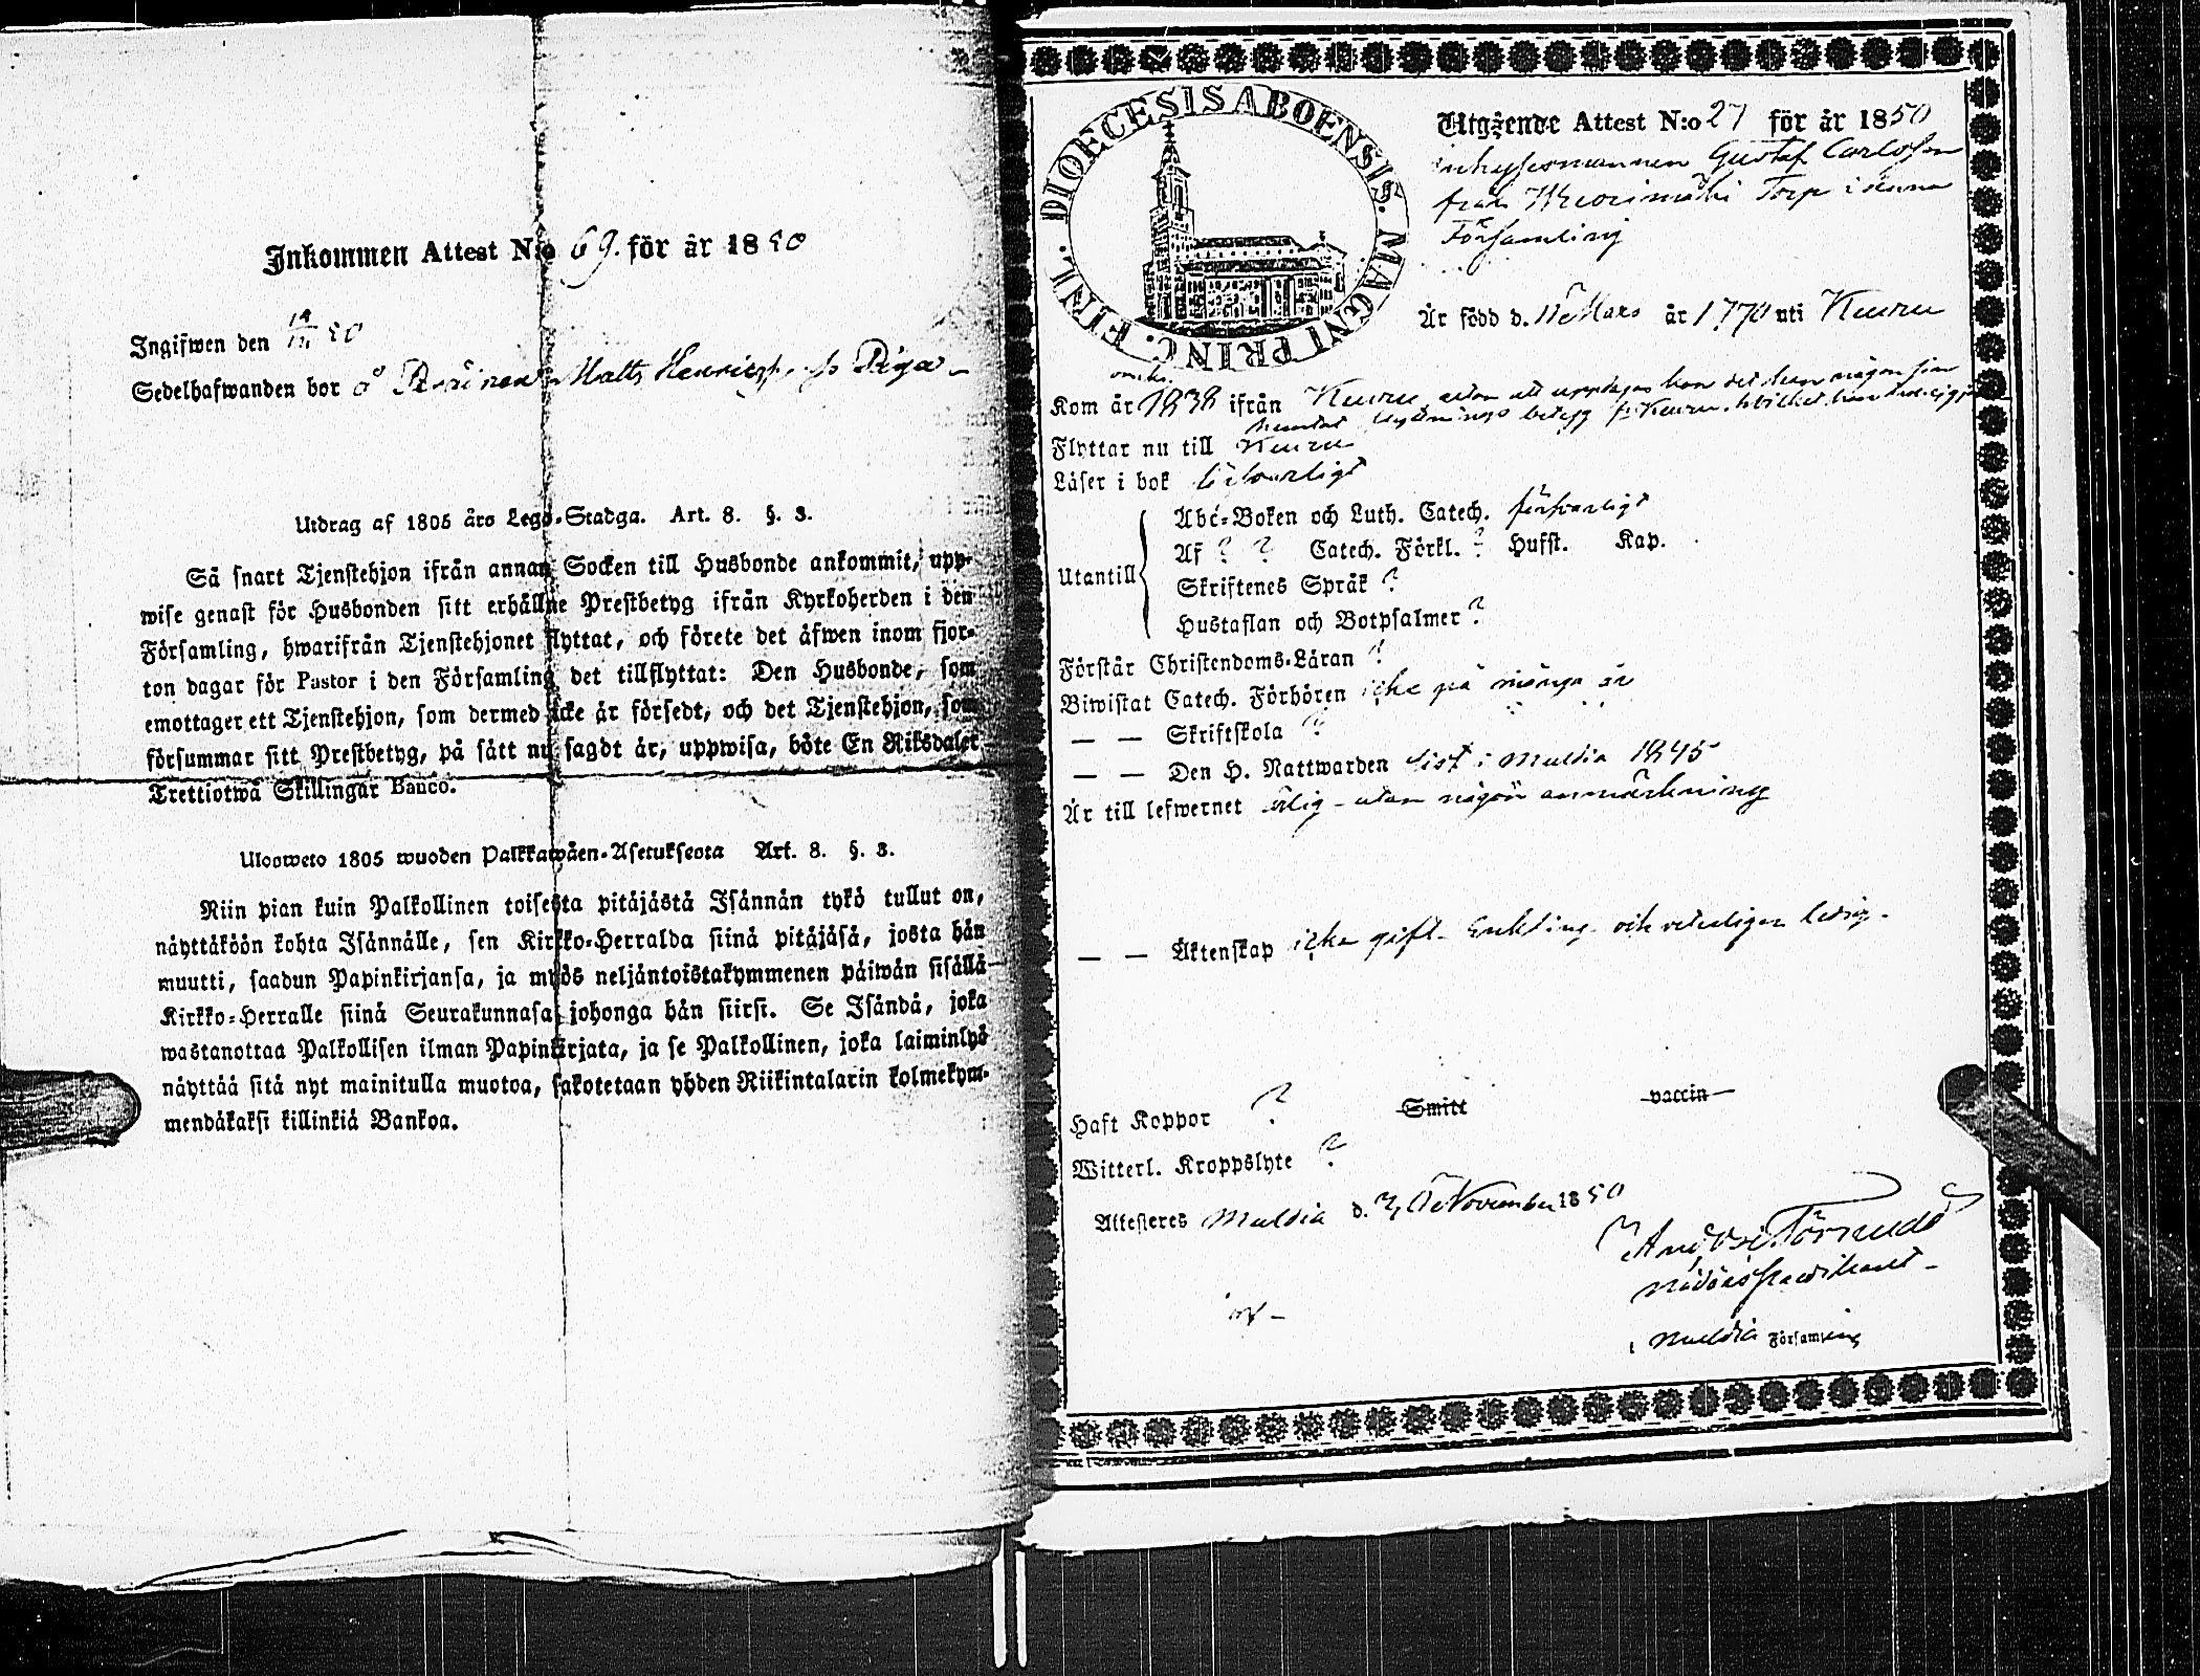 Inkommen Attest N:o 69. för år 1850
Ingifwen den 50
Sedelhafwanden bor å Matts Henrics
Utdrag af 1805 års Lego-Stadga. Art. 8. §. 3.
Så snart Tjenstehjon ifrån annan Socken till Husbonde ankommit, upp-
wise genast för Husbonden sitt erhållne Prestbetyg ifrån Kyrkoherden i den
Församling, hwarifrån Tjenstehjonet flyttat, och förete det äfwen inom fjor-
ton dagar för Pastor i den Församling det tillflyttat: Den Husbonde, som
emottager ett Tjenstehjon, som dermed icke är försedt, och det Tjenstehjon, som
försummar sitt Prestbetyg, på sätt nu sagdt är, uppwisa, böte En Riksdaler
Trettiotwå Skillingar Banco.
Ulosweto 1805 wuoden Palkkawäen-Asetuksesta Art. 8. §. 3.
Niin pian kuin Palkollinen toisesta pitäjästä Isännän tykö tullut on,
näyttäköön kohta Isännälle, sen Kirkko-Herralda siinä pitäjäsä, josta hän
muutti, saadun Papinkirjansa, ja myös neljäntoistakymmenen päiwän sisällä
Kirkko-Herralle siinä Seurakunnasa johonga hän siirsi. Se Isändä, joka
wastanottaa Palkollisen ilman Papinkirjata, ja se Palkollinen, joka laiminlyö
näyttää sitä nyt mainitulla muotoa, sakotetaan yhden Riikintalarin kolmekym-
mendäkaksi killinkiä Bankoa.
DIOECESIS ABOENSIS. MAGNI PRINC. FINL.
Utgående Attest N:o 27 för år 1850
inhysesmannen Gustaf Carlsson
från Torp i denna
Församling
Är född d. 11 Mars år 1770 uti Keuru
omkr.
Kom år 1838 ifrån Keuru, utan att
betyg fr. Keuru
Flyttar nu till Keuru
Läser i bok försvarligt
Abc-Boken och Luth. Catech. försvarligt
Af ? ? Catech. Förkl. ? Husst. Kap.
Utantill
Skriftenes Språk ?
Hustaflan och Botpsalmer ?
Förstår Christendoms-Läran ?
Biwistat Catech. Förhören icke på många år
— — Skriftskola ?
— — Den H. Nattwarden sist i Multia 1845
Är till lefwernet ärlig - utan någon anmärkning
— — Äktenskap icke gift - Enkling och ledig -
Haft Koppor ? Smitt vaccin
Witterl. Kroppslyte ?
Attesteres Multia d. November 1850
Törnudd
nådårspredikant -
i Multia Församling